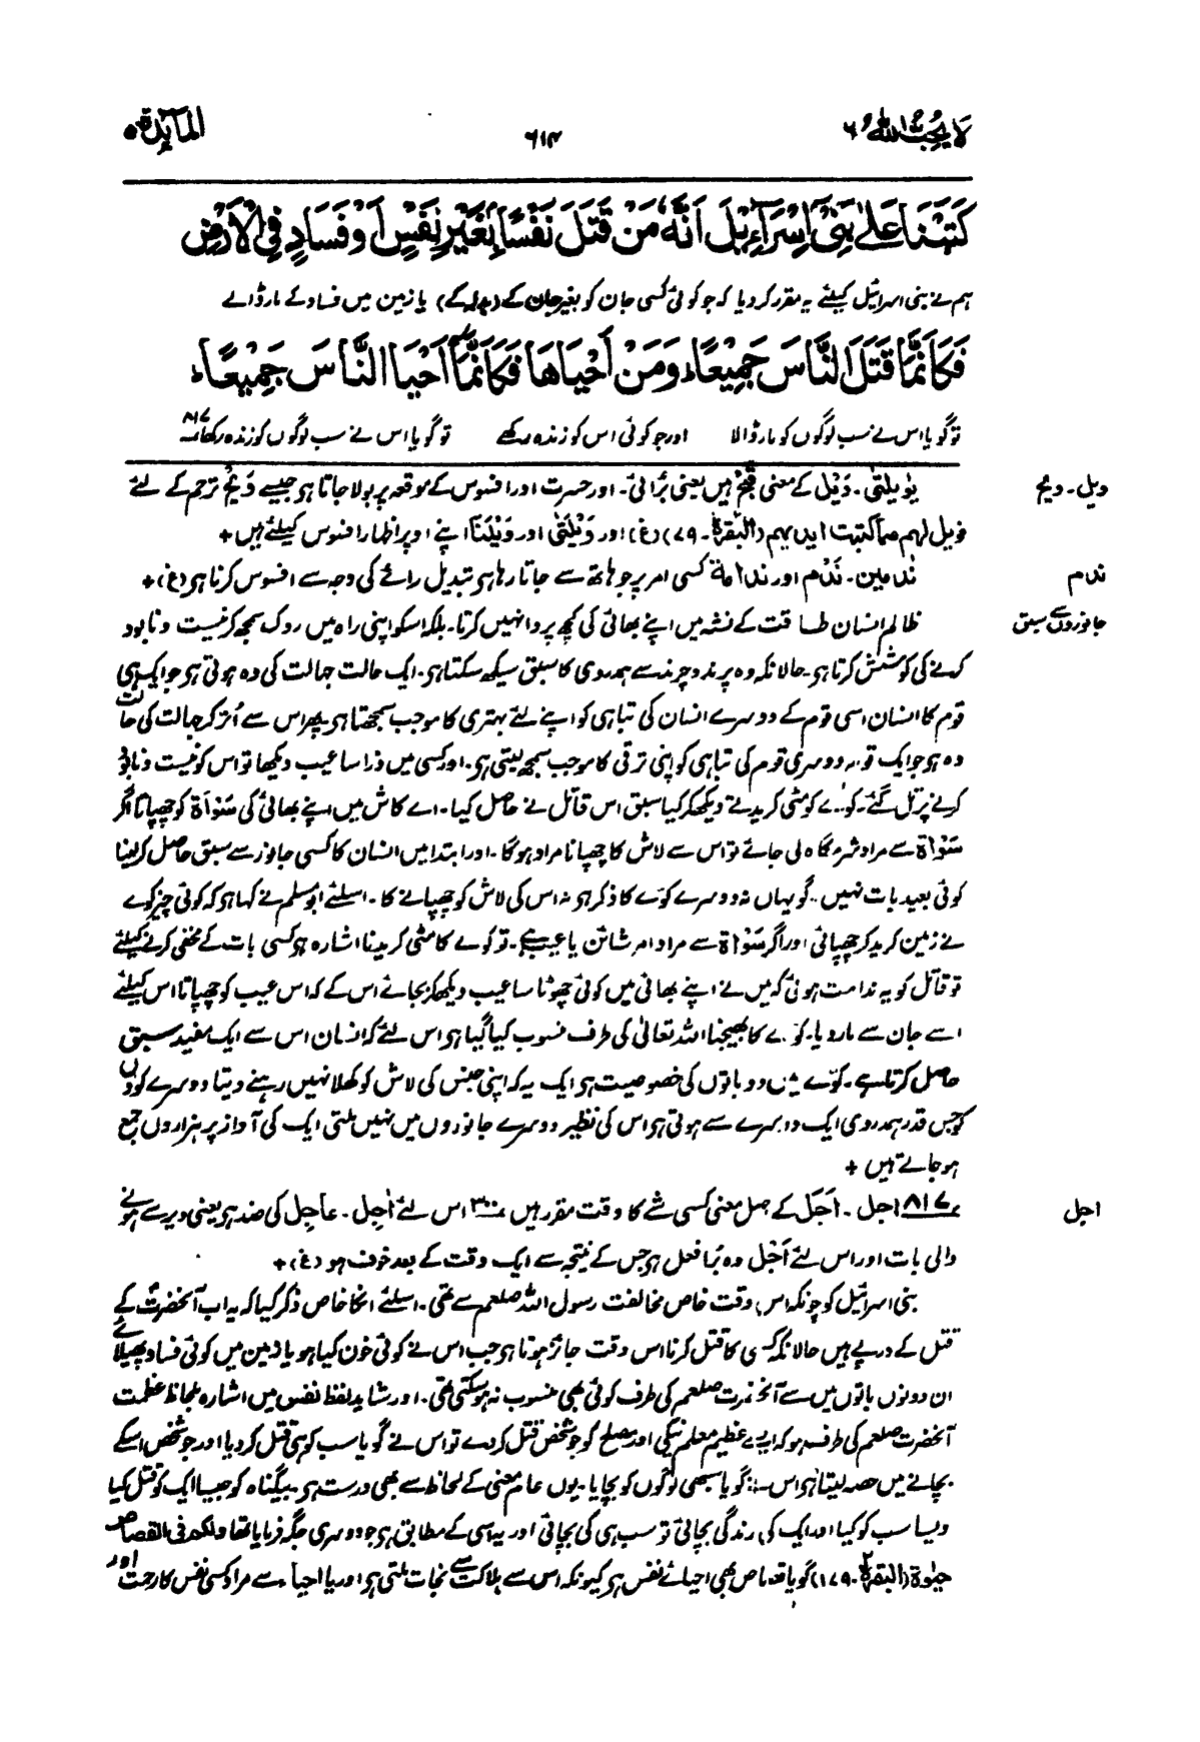 لَا يُحِبُّ اللهُ ٦
٦١٣
المآئدة ٥
كَتَبْنَا عَلٰى بَنِىْٓ اِسْرَآءِيْلَ اَنَّهٗ مَنْ قَتَلَ نَفْسًۢا بِغَيْرِ نَفْسٍ اَوْ فَسَادٍ فِى الْاَرْضِ
ہم نے بنی اسرائیل کیلئے یہ مقرر کر دیا کہ جو کوئی کسی جان کو بغیر جان کے (بدلہ کے) یا زمین میں فساد کے مار ڈالے
فَكَاَنَّمَا قَتَلَ النَّاسَ جَمِيْعًا ؕ وَمَنْ اَحْيَاهَا فَكَاَنَّمَاۤ اَحْيَا النَّاسَ جَمِيْعًا ؕ
تو گویا اس نے سب لوگوں کو مار ڈالا اور جو کوئی اس کو زندہ رکھے تو گویا اس نے سب لوگوں کو زندہ رکھا ٨١٧
ویل۔ ویح
یٰویلتیٰ۔ وَیْل کے معنی قُبْحٌ ہیں یعنی بُرائی۔ اور حسرت اور افسوس کے موقعہ پر بولا جاتا ہو جیسے وَیْحٌ ترحم کے لئے
فویل لہم مما کتبت ایدیہم (البقرۃ۔ ٧٩) (غ) اور وَیْلَتٰی اور وَیْلَتَنَا اپنے اوپر اظہار افسوس کیلئے ہیں +
ندم
نٰدمین۔ نَدْم اور ندامۃ کسی امر پر جو ہاتھ سے جاتا رہا ہو تبدیل رائے کی وجہ سے افسوس کرنا ہو (غ) +
جانوروں سے سبق
ظالم انسان طاقت کے نشہ میں اپنے بھائی کی کچھ پروا نہیں کرتا۔ بلکہ اسکو اپنی راہ میں روک سمجھ کر نیست و نابود
کرنے کی کوشش کرتا ہو۔ حالانکہ وہ پرند و چرند سے ہمدردی کا سبق سیکھ سکتا ہو۔ ایک حالت جہالت کی وہ ہوتی ہو جو ایک ہی
قوم کا انسان اسی قوم کے دوسرے انسان کی تباہی کو اپنے لئے بہتری کا موجب سمجھتا ہو پھر اس سے اُتر کر جہالت کی حالت
وہ ہو جو ایک قوم دوسری قوم کی تباہی کو اپنی ترقی کا موجب سمجھ لیتی ہو۔ اور کسی میں ذرا سا عیب دیکھا تو اس کو نیست و نابود
کرنے پر تل گئے۔ کوے کو مٹی کریدتے دیکھکر کیا سبق اس قاتل نے حاصل کیا۔ اے کاش میں اپنے بھائی کی سَوْاَۃ کو چھپاتا اگر
سَوْاَۃ سے مراد شرمگاہ لی جائے تو اس سے لاش کا چھپانا مراد ہوگا۔ اور ابتدا میں انسان کا کسی جانور سے سبق حاصل کر لینا
کوئی بعید بات نہیں۔ گو یہاں نہ دوسرے کوے کا ذکر ہو نہ اس کی لاش کو چھپانے کا۔ اسلئے ابو مسلم نے کہا ہو کہ کوئی چیز کوے
نے زمین کرید کر چھپائی اور اگر سَوْاَۃ سے مراد امر شائن یا عیب ہے۔ تو کوے کا مٹی کریدنا اشارہ ہو کسی بات کے مخفی کرنے کیلئے
تو قاتل کو یہ ندامت ہوئی کہ میں نے اپنے بھائی میں کوئی چھوٹا سا عیب دیکھکر بجائے اس کے کہ اس عیب کو چھپاتا اس کیلئے
اسے جان سے مار دیا۔ کوے کا بھیجنا اللہ تعالیٰ کی طرف منسوب کیا گیا ہو اس لئے کہ انسان اس سے ایک مفید سبق
حاصل کرتا ہے۔ کوے میں دو باتوں کی خصوصیت ہو ایک یہ کہ اپنی جنس کی لاش کو کھلا نہیں رہنے دیتا دوسرے کوؤں
کو جس قدر ہمدردی ایک دوسرے سے ہوتی ہو اس کی نظیر دوسرے جانوروں میں نہیں ملتی ایک کی آواز پر ہزاروں جمع
ہو جاتے ہیں +
اجل
٨١٧ اجل۔ اَجَل کے اصل معنی کسی شے کا وقت مقرر ہیں اس لئے اٰجِل۔ عاجل کی ضد ہو یعنی دیر سے ہونے
والی بات اور اس لئے اَجْل وہ بُرا فعل ہو جس کے نتیجہ سے ایک وقت کے بعد خوف ہو (غ) +
بنی اسرائیل کو چونکہ اس وقت خاص مخالفت رسول اللہ صلعم سے تھی۔ اسلئے انکا خاص ذکر کیا کہ یہ اب آنحضرتؐ کے
قتل کے درپے ہیں حالانکہ کسی کا قتل کرنا اس وقت جائز ہوتا ہو جب اس نے کوئی خون کیا ہو یا زمین میں کوئی فساد پھیلائے
ان دونوں باتوں میں سے آنحضرت صلعم کی طرف کوئی بھی منسوب نہ ہو سکتی تھی۔ اور شاید لفظ نفس میں اشارہ بلحاظ عظمت
آنحضرت صلعم کی طرف ہو کہ ایسے عظیم معلم نیکی اور مصلح کو جو شخص قتل کر دے تو اس نے گویا سب کو ہی قتل کر دیا اور جو شخص اسکے
بچانے میں حصہ لیتا ہو اس نے گویا سبھی لوگوں کو بچایا۔ یوں عام معنی کے لحاظ سے بھی درست ہو۔ بیگناہ کو جیسا ایک کو قتل کیا
ویسا سب کو کیا اور ایک کی زندگی بچائی تو سب ہی کی بچائی اور یہ اسی کے مطابق ہو جو دوسری جگہ فرمایا تھا ولکم فی القصاص
حیٰوۃ (البقرۃ۔ ١٧٩) گویا قصاص بھی احیائے نفس ہو کیونکہ اس سے ہلاکت سے نجات ملتی ہو اور یا احیاء سے مراد کسی نفس کا رحمت اور